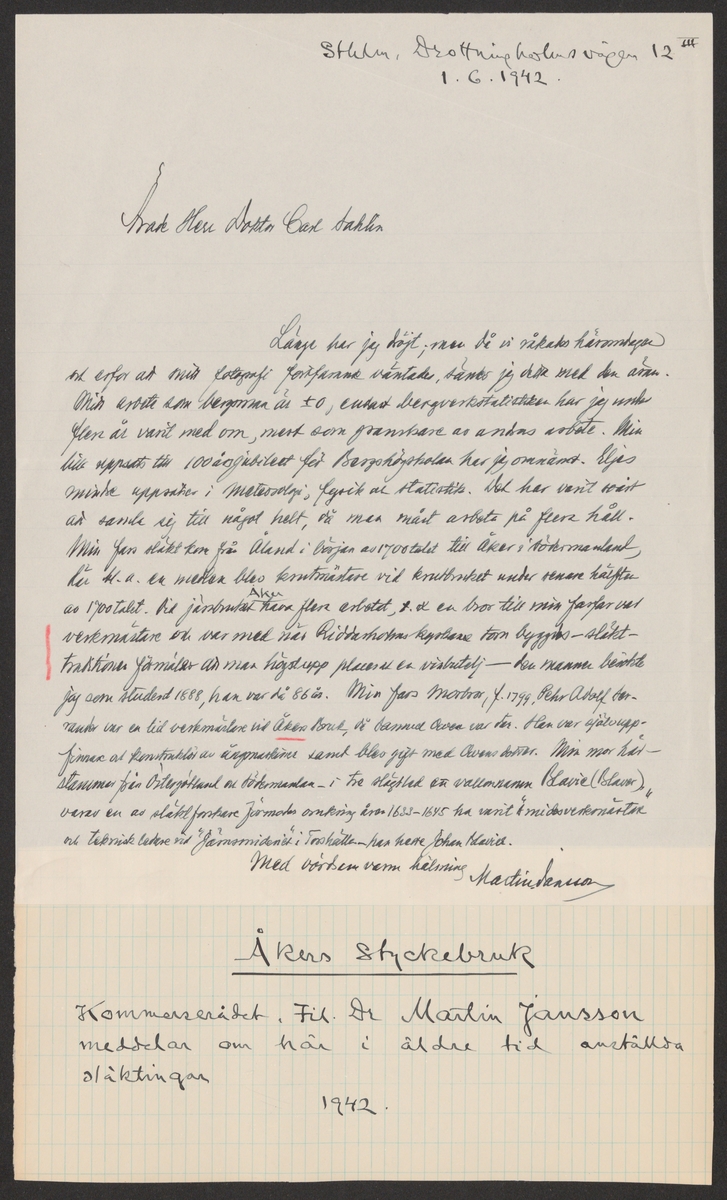 Sthlm, Drottningholmsvägen 12 III
1.6.1942.
Ärade Herr Doktor Carl Sahlin
Länge har jag dröjt, men då vi råkades häromdagen
och erfor att mitt fotografi fortfarande väntades, sänder jag detta med den äran.
Mitt arbete som bergsman är ±0, endast bergverksstatistiken har jag under
flera år varit med om, mest som granskare av andras arbete. Min
lilla uppsats till 100årsjubileet för Bergshögskolan har jag omnämnt. Eljes
mindre uppsatser i meteorologi, fysik och statistik. Det har varit svårt
att samla sig till något helt, då man måst arbeta på flera håll.
Min fars släkt kom från Åland i början av 1700talet till Åker i Södermanland,
där bl.a. en medlem blev krutmästare vid krutbruket under senare hälften
av 1700talet. Vid järnbruket Åker hava flera arbetat, t.ex en bror till min farfar var
verkmästare och var med när Riddarholmskyrkans torn byggdes – släkt-
traditionen förmäler att man högst upp placerat en vinbutelj – den mannen besökte
jag som student 1888, han var då 86 år. Min fars morbror, f. 1799, Pehr Adolf
var en tid verkmästare vid Åkers Bruk, då Samuel Owen var där. Han var själv upp-
finnare och konstruktör av ångmaskiner samt blev gift med Owens dotter. Min mor här-
stammar från Östergötland och Södermanland – i tre släktled en vallonnamn Blavie (Blavier),
varav en av släktforskare förmodas omkring åren 1633–1645 ha varit "smidesverkmästare"
och teknisk ledare vid "Järnsmideriet" i Torshälla – han hette Johan Blavier.
Med vördsam varm hälsning Martin Jansson
Åkers Styckebruk
Kommerserådet, Fil. Dr Martin Jansson
meddelar om här i äldre tid anställda
släktingar
1942.